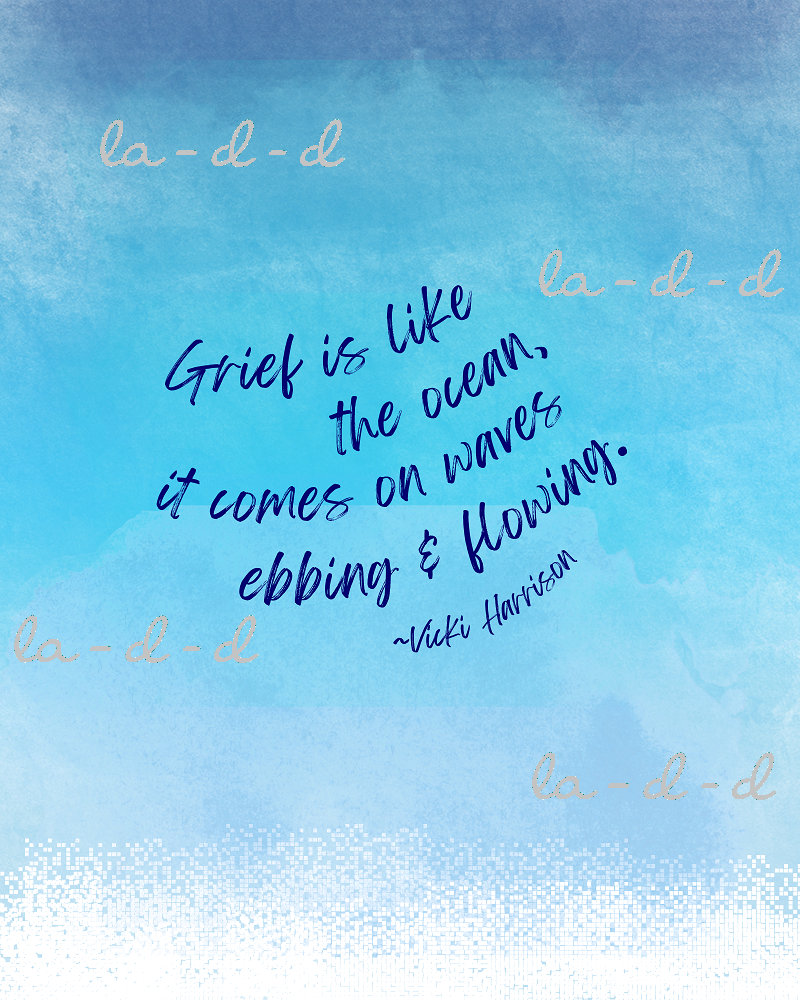 la-d-d
la-d-d
Grief is like
the ocean,
it comes on waves
ebbing & flowing.
~Vicki Harrison
la-d-d
la-d-d